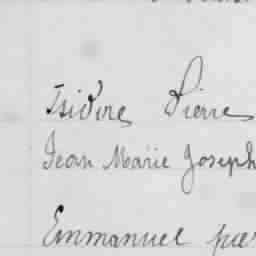 Isidore Pierre
Jean Marie Joseph
Emmanuel